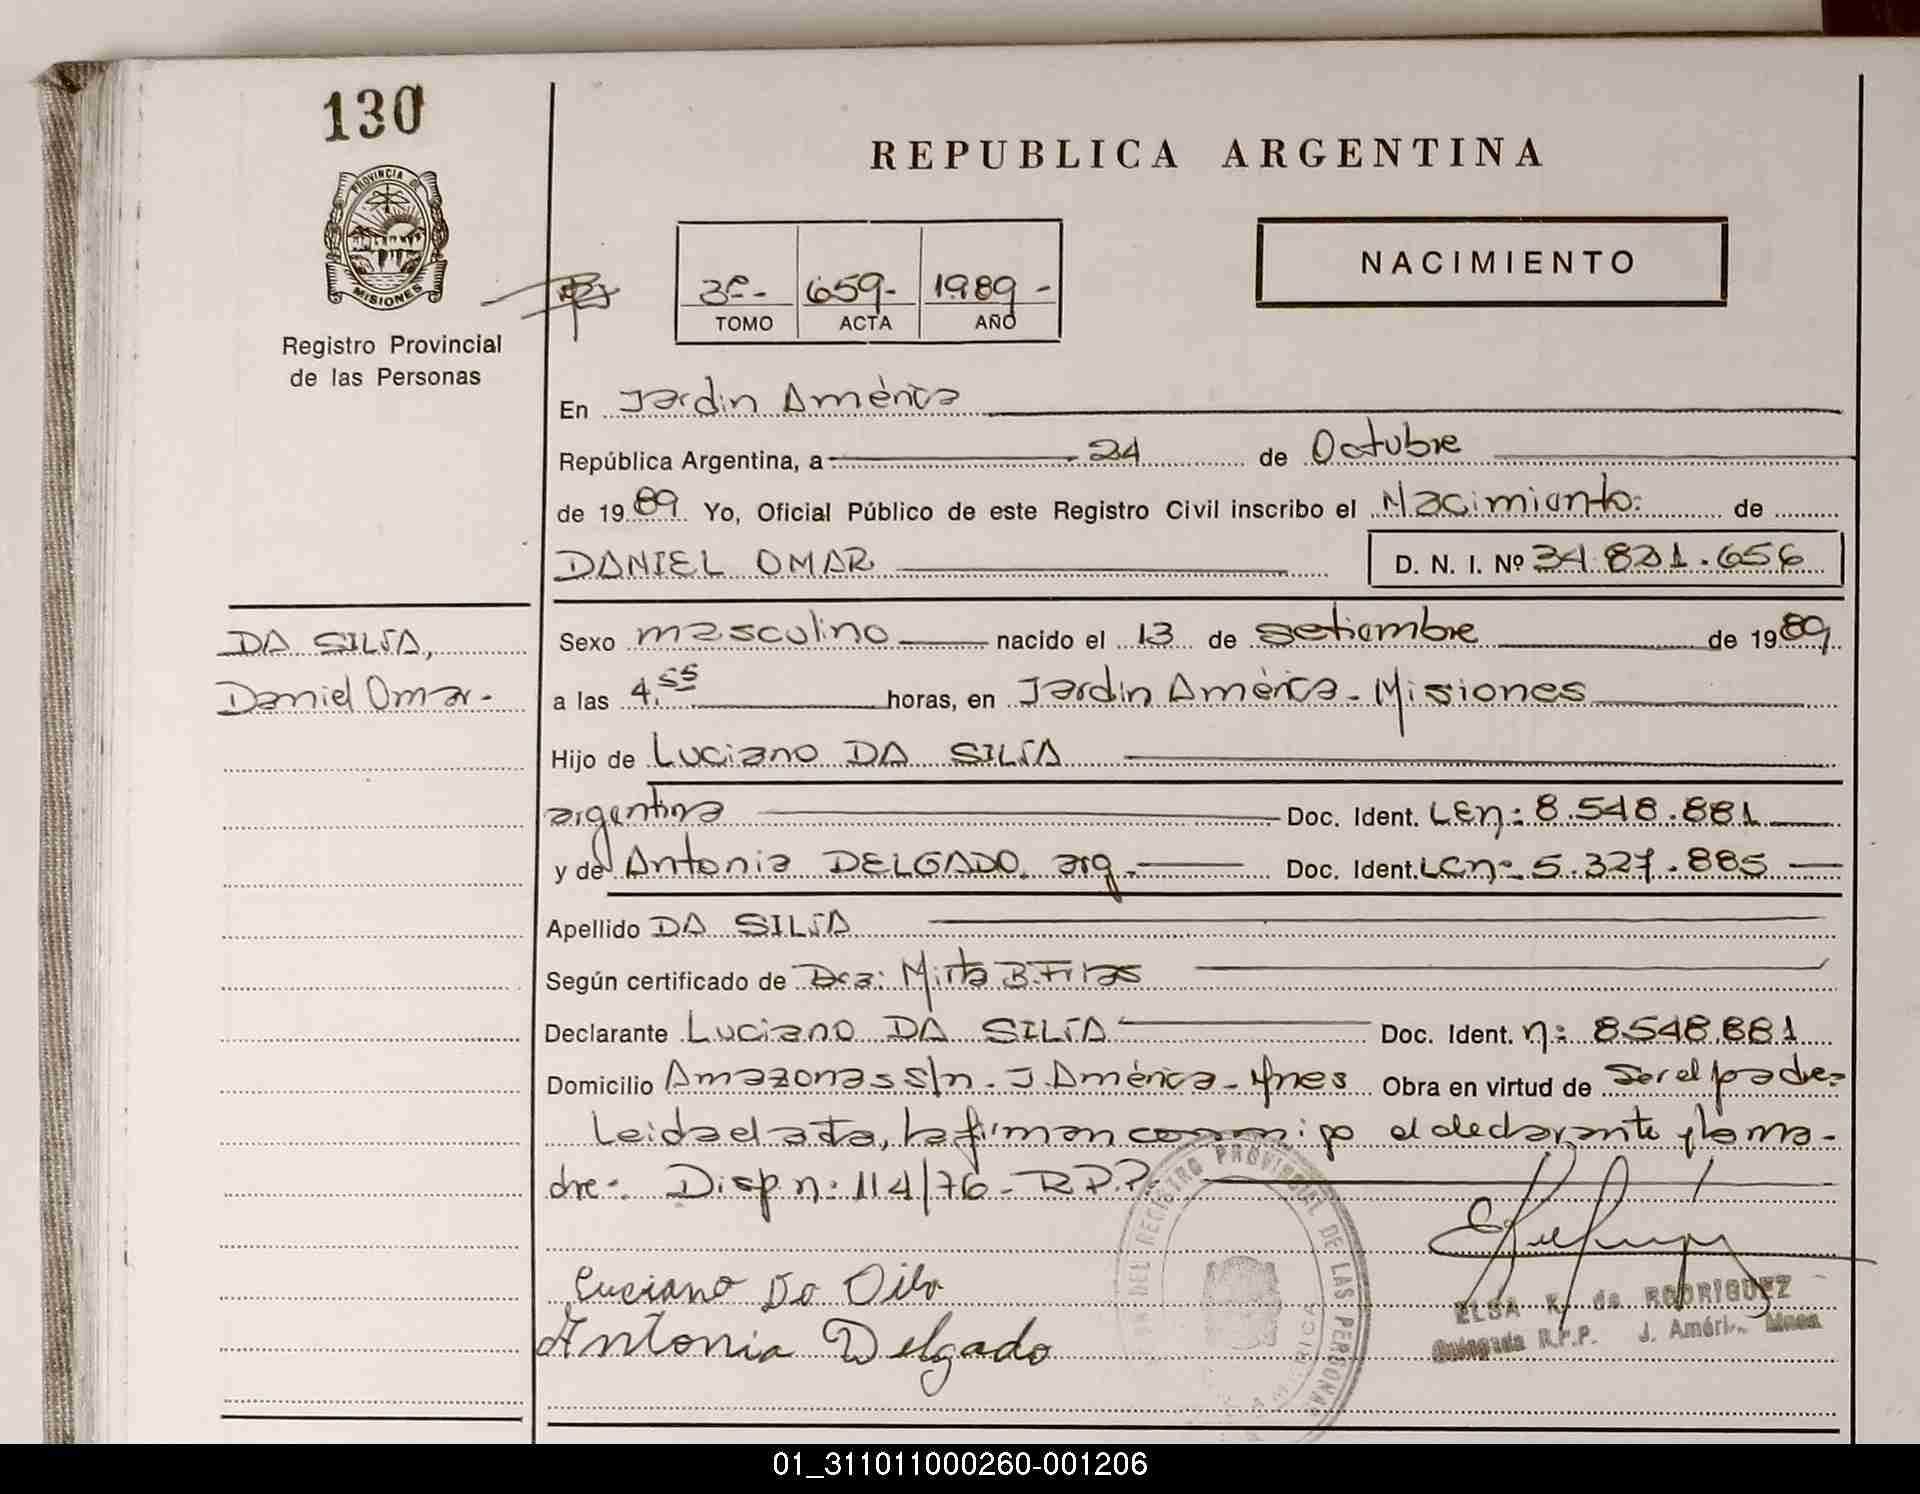 130
PROVINCIA DE
MISIONES
Registro Provincial
de las Personas
REPUBLICA ARGENTINA
NACIMIENTO
3º- 659- 1989-
TOMO ACTA AÑO
En Jardin América
República Argentina, a 24 de Octubre
de 1989 Yo, Oficial Público de este Registro Civil inscribo el Nacimiento: de
DANIEL OMAR D. N. I. Nº 34.821.656
DA SILVA,
Daniel Omar-
Sexo masculino nacido el 13 de setiembre de 1989
a las 4.55 horas, en Jardin América-Misiones
Hijo de Luciano DA SILVA
argentina Doc. Ident. LEn: 8.548.881
y de Antonia DELGADO. arg. Doc. Ident. LCn: 5.327.885
Apellido DA SILVA
Según certificado de Dra: Mirta B. Frias
Declarante Luciano DA SILVA Doc. Ident. n: 8.548.881
Domicilio Amazonas s/n - J. América - Mnes Obra en virtud de Ser el padre-
Leida el acta, la firman conmigo el declarante y la ma-
dre-. Disp n: 114/76- R.P.P.
REGISTRO PROVINCIAL DE LAS PERSONAS
Luciano Da Silva
Antonia Delgado
ELSA K. de RODRIGUEZ
Delegada R.P.P. J. Améri. Mnes
01_311011000260-001206